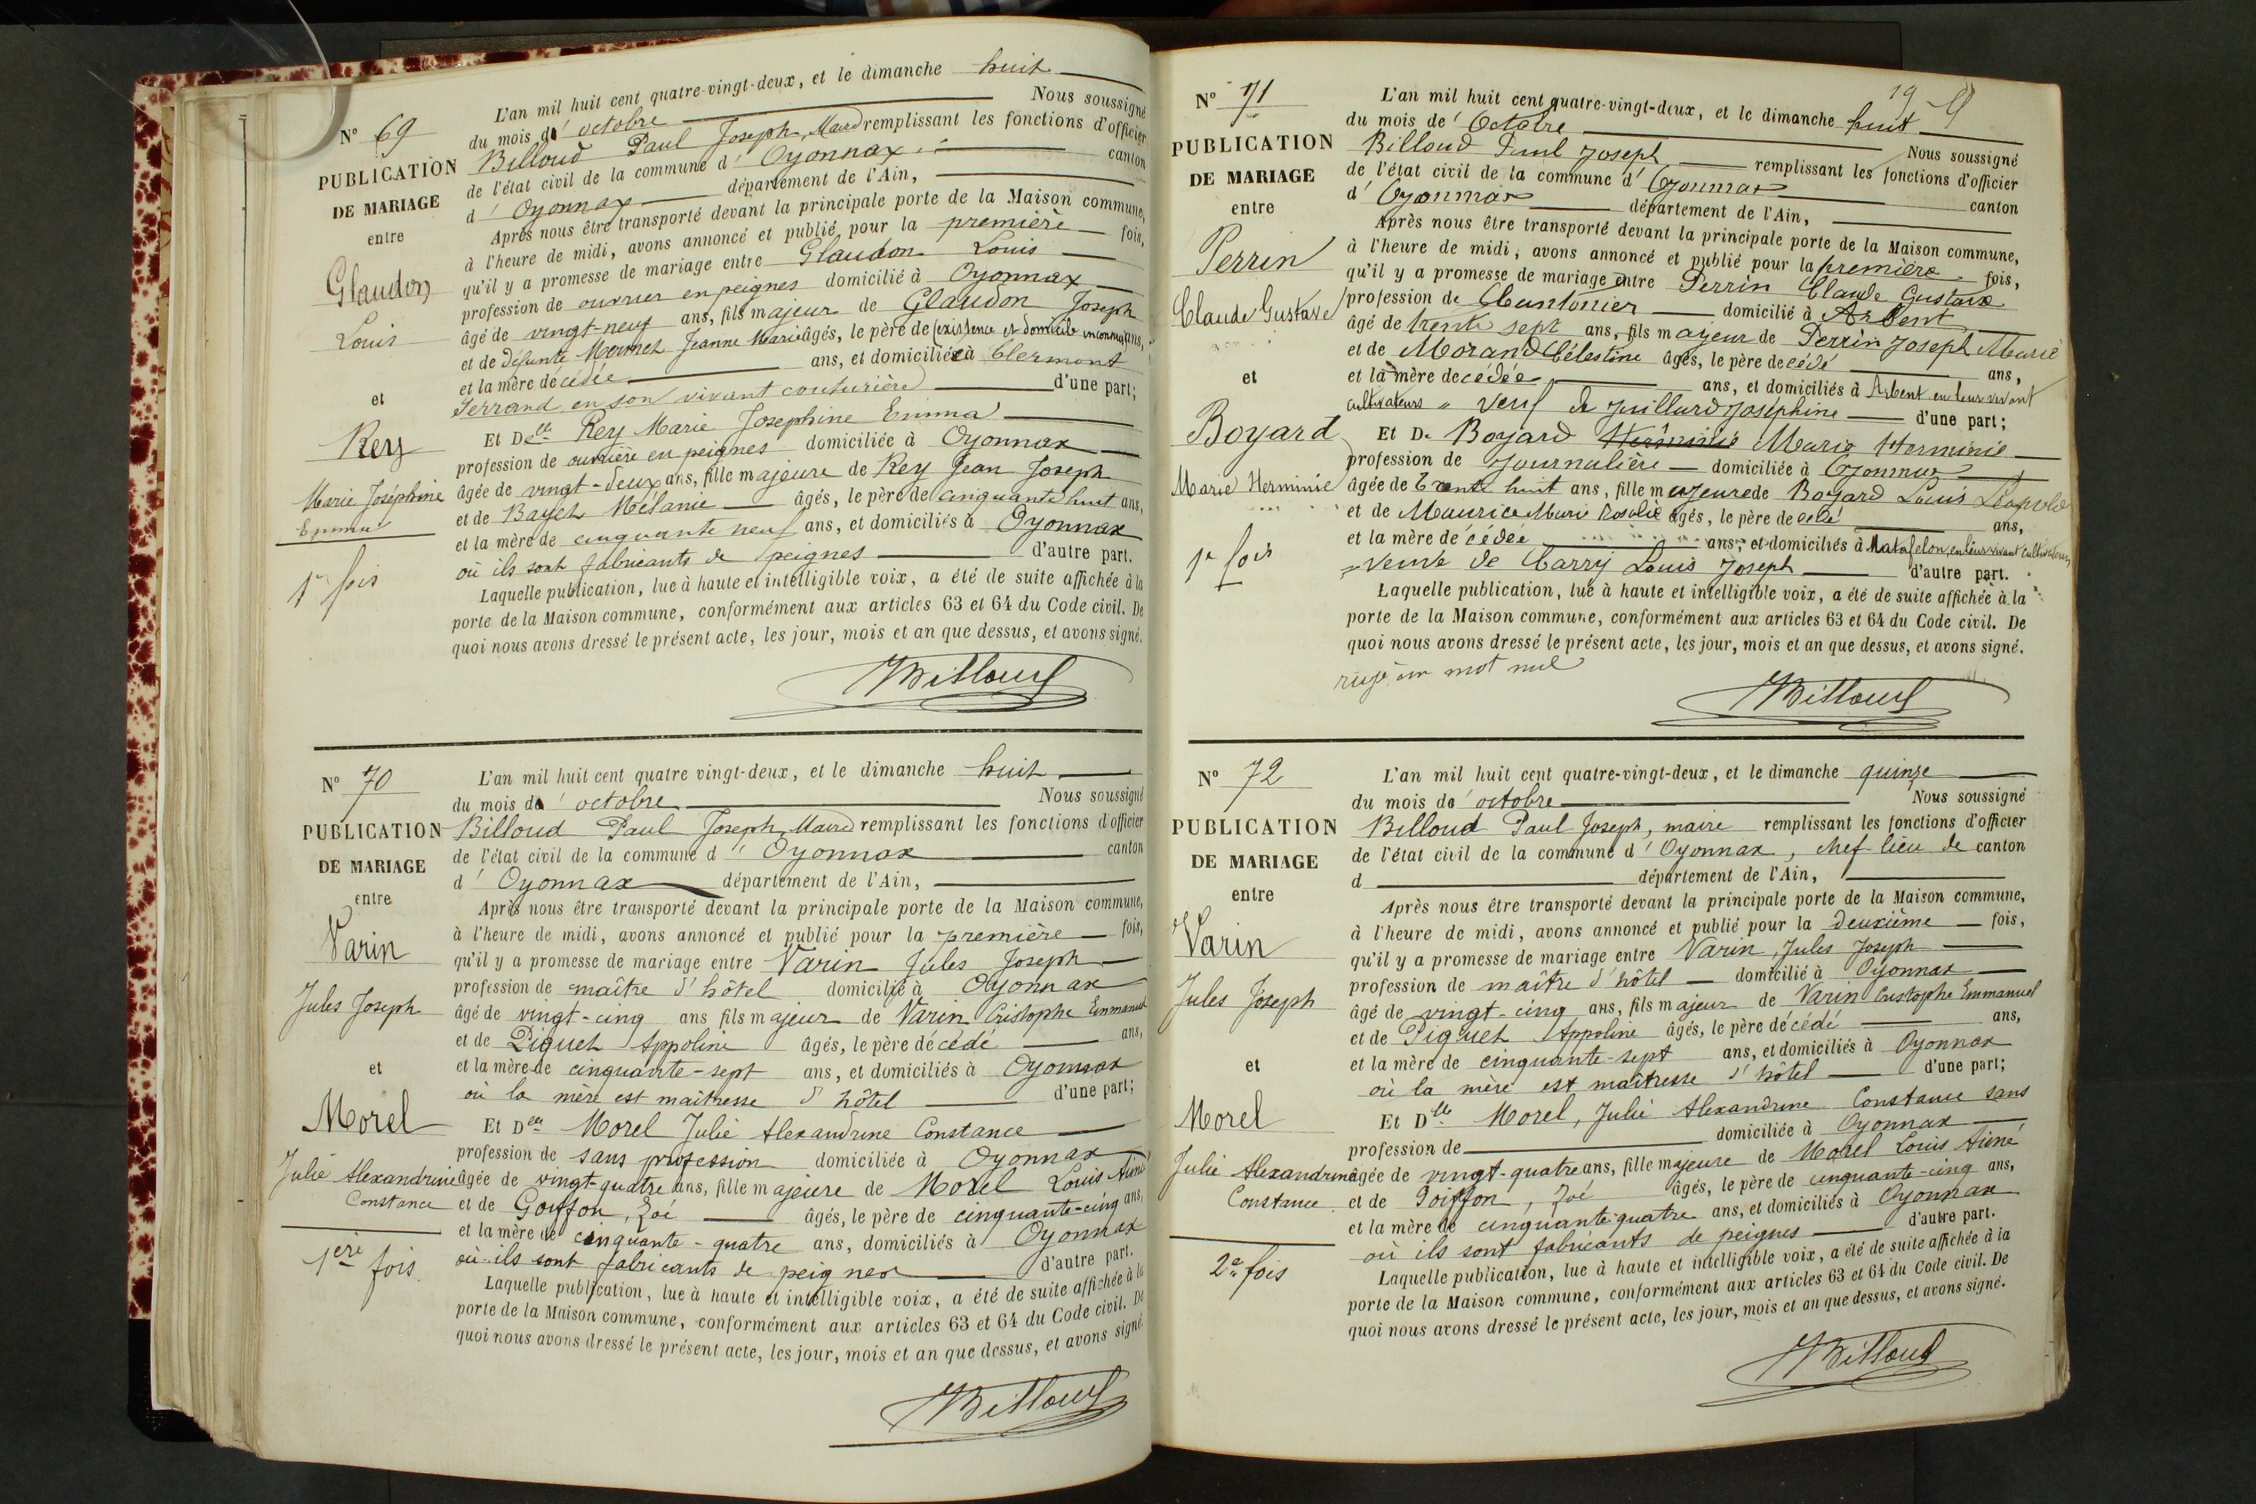 N° 69
PUBLICATION
DE MARIAGE
entre
Glaudon
Louis
et
Rey
Marie Joséphine
Emma
1re fois
L'an mil huit cent quatre-vingt-deux, et le dimanche huit
du mois d'octobre Nous soussigné
Billoud Paul Joseph, Maire remplissant les fonctions d'officier
de l'état civil de la commune d'Oyonnax canton
d'Oyonnax département de l'Ain,
Après nous être transporté devant la principale porte de la Maison commune,
à l'heure de midi, avons annoncé et publié pour la première fois,
qu'il y a promesse de mariage entre Glaudon Louis
profession de ouvrier en peignes domicilié à Oyonnax
âgé de vingt-neuf ans, fils majeur de Glaudon Joseph
et de défunte Jeanne Marie âgés, le père de (existence et domicile inconnus) ans,
et la mère décédée ans, et domiciliée à Clermont
Ferrand en son vivant couturière d'une part;
Et Delle Rey Marie Josephine Emma
profession de ouvrière en peignes domiciliée à Oyonnax
âgée de vingt-deux ans, fille majeure de Rey Jean Joseph
et de Mélanie âgés, le père de cinquante huit ans,
et la mère de cinquante neuf ans, et domiciliés à Oyonnax
où ils sont fabricants de peignes d'autre part.
Laquelle publication, lue à haute et intelligible voix, a été de suite affichée à la
porte de la Maison commune, conformément aux articles 63 et 64 du Code civil. De
quoi nous avons dressé le présent acte, les jour, mois et an que dessus, et avons signé.
Billoud
N° 70
PUBLICATION
DE MARIAGE
entre
Varin
Jules Joseph
et
Morel
Julie Alexandrine
Constance
1ère fois
L'an mil huit cent quatre vingt-deux, et le dimanche huit
du mois d'octobre Nous soussigné
Billoud Paul Joseph, Maire remplissant les fonctions d'officier
de l'état civil de la commune d'Oyonnax canton
d'Oyonnax département de l'Ain,
Après nous être transporté devant la principale porte de la Maison commune,
à l'heure de midi, avons annoncé et publié pour la première fois,
qu'il y a promesse de mariage entre Varin Jules Joseph
profession de maître d'hôtel domicilié à Oyonnax
âgé de vingt-cinq ans fils majeur de Varin Cristophe Emmanuel
et de Piquet Appoline âgés, le père décédé ans,
et la mère de cinquante-sept ans, et domiciliés à Oyonnax
où la mère est maîtresse d'hôtel d'une part;
Et Delle Morel Julie Alexandrine Constance
profession de sans profession domiciliée à Oyonnax
âgée de vingt-quatre ans, fille majeure de Morel Louis Aimé
et de Goiffon, Zoé âgés, le père de cinquante-cinq ans,
et la mère de cinquante-quatre ans, domiciliés à Oyonnax
où ils sont fabricants de peignes d'autre part.
Laquelle publication, lue à haute et intelligible voix, a été de suite affichée à la
porte de la Maison commune, conformément aux articles 63 et 64 du Code civil. De
quoi nous avons dressé le présent acte, les jour, mois et an que dessus, et avons signé.
Billoud
19
N° 71
PUBLICATION
DE MARIAGE
entre
Perrin
Claude Gustave
et
Boyard
Marie Herminie
1re fois
L'an mil huit cent quatre-vingt-deux, et le dimanche huit
du mois de' Octobre Nous soussigné
Billoud Paul Joseph remplissant les fonctions d'officier
de l'état civil de la commune d'Oyonnax canton
d'Oyonnax département de l'Ain,
Après nous être transporté devant la principale porte de la Maison commune,
à l'heure de midi, avons annoncé et publié pour la première fois,
qu'il y a promesse de mariage entre Perrin Claude Gustave
profession de Cantonier domicilié à Arbent
âgé de trente sept ans, fils majeur de Perrin Joseph Marie
et de Morand Célestine âgés, le père décédé ans,
et la mère décédée ans, et domiciliés à Arbent en leur vivant
cultivateurs veuf de Juillard Joséphine d'une part;
Et De Boyard Herminie Marie Herminie
profession de Journalière domiciliée à Oyonnax
âgée de trente huit ans, fille majeure de Boyard Louis Léopold
et de Maurice Marie Rosalie âgés, le père décédé ans,
et la mère décédée ans, et domiciliés à Matafelon, en leur vivant cultivateurs
veuve de Carry Louis Joseph d'autre part.
Laquelle publication, lue à haute et intelligible voix, a été de suite affichée à la
porte de la Maison commune, conformément aux articles 63 et 64 du Code civil. De
quoi nous avons dressé le présent acte, les jour, mois et an que dessus, et avons signé.
rayé un mot nul
Billoud
N° 72
PUBLICATION
DE MARIAGE
entre
Varin
Jules Joseph
et
Morel
Julie Alexandrine
Constance
2e fois
L'an mil huit cent quatre-vingt-deux, et le dimanche quinze
du mois d'octobre Nous soussigné
Billoud Paul Joseph, maire remplissant les fonctions d'officier
de l'état civil de la commune d'Oyonnax, chef-lieu de canton
d département de l'Ain,
Après nous être transporté devant la principale porte de la Maison commune,
à l'heure de midi, avons annoncé et publié pour la deuxième fois,
qu'il y a promesse de mariage entre Varin, Jules Joseph
profession de maître d'hôtel domicilié à Oyonnax
âgé de vingt-cinq ans, fils majeur de Varin Cristophe Emmanuel
et de Piquet Appoline âgés, le père décédé ans,
et la mère de cinquante-sept ans, et domiciliés à Oyonnax
où la mère est maîtresse d'hôtel d'une part;
Et Dlle Morel, Julie Alexandrine Constance sans
profession de domiciliée à Oyonnax
âgée de vingt-quatre ans, fille majeure de Morel Louis Aimé
et de Goiffon, Zoé âgés, le père de cinquante-cinq ans,
et la mère de cinquante-quatre ans, et domiciliés à Oyonnax
où ils sont fabricants de peignes d'autre part.
Laquelle publication, lue à haute et intelligible voix, a été de suite affichée à la
porte de la Maison commune, conformément aux articles 63 et 64 du Code civil. De
quoi nous avons dressé le présent acte, les jour, mois et an que dessus, et avons signé.
Billoud